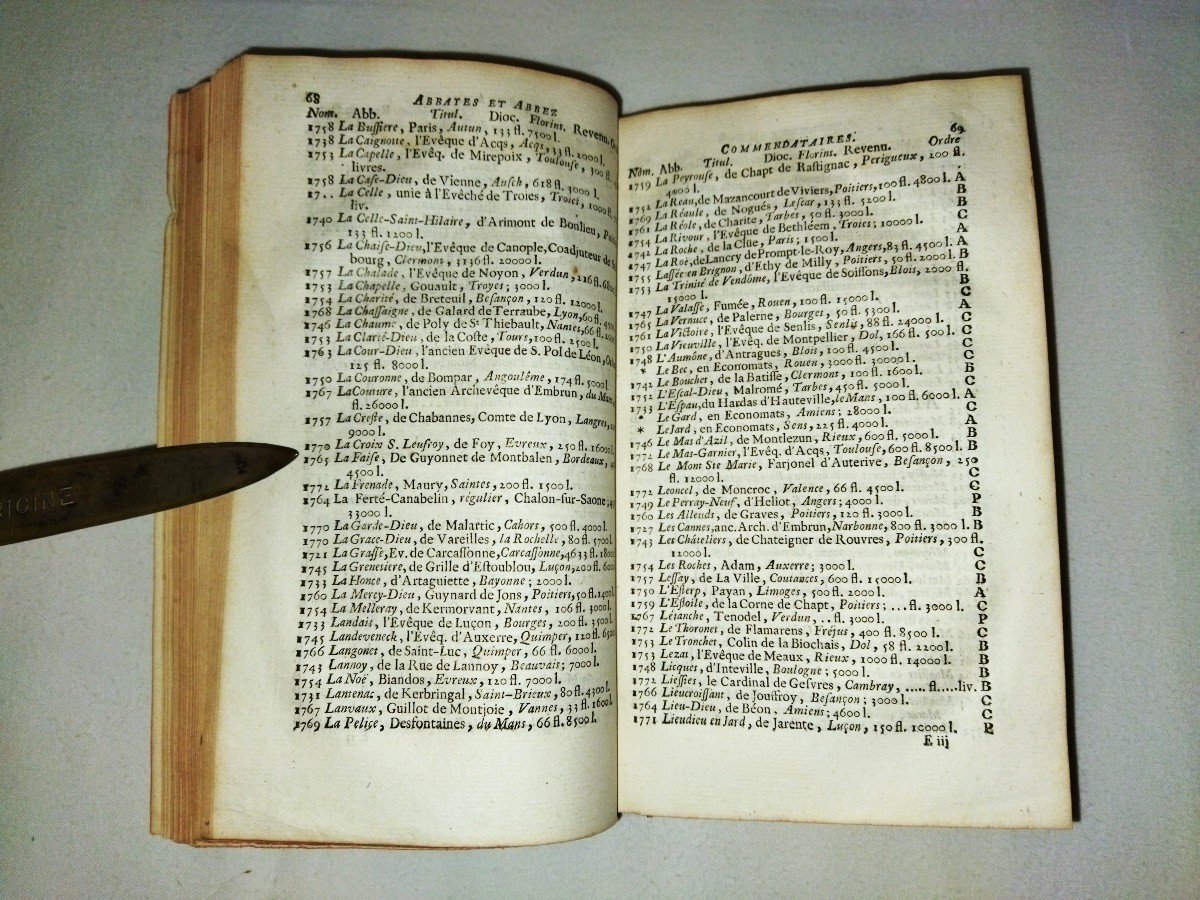 68 ABBAYES ET ABBEZ
Nom. Abb. Titul. Dioc. Florins. Revenu.
1758 La Bussiere, Paris, Autun, 133 fl. 7500 l.
1738 La Caignotte, l'Evêque d'Acqs, Acqs, 33 fl. 2000 l.
1753 La Capelle, l'Evêq. de Mirepoix, Toulouse, 300 fl.
livres.
1758 La Case-Dieu, de Vienne, Ausch, 618 fl. 3000 l.
17.. La Celle, unie à l'Evêché de Troies, Troies, 1000 fl.
liv.
1740 La Celle-Saint-Hilaire, d'Arimont de Boulieu,
133 fl. 1200 l.
1756 La Chaise-Dieu, l'Evêque de Canople, Coadjuteur de
bourg, Clermont, 3136 fl. 20000 l.
1757 La Chalade, l'Evêque de Noyon, Verdun, 216 fl.
1753 La Chapelle, Gouault, Troyes; 3000 l.
1754 La Charité, de Breteuil, Besançon, 120 fl. 12000 l.
1768 La Chassaigne, de Galard de Terraube, Lyon, 60 fl.
1746 La Chaume, de Poly de St Thiebault, Nantes, 66 fl.
1753 La Clarté-Dieu, de la Coste, Tours, 100 fl. 2500 l.
1763 La Cour-Dieu, l'ancien Evêque de S. Pol de Léon,
125 fl. 8000 l.
1750 La Couronne, de Bompar, Angoulême, 174 fl. 5000 l.
1767 La Couture, l'ancien Archevêque d'Embrun, du Mans,
fl. 26000 l.
1757 La Creste, de Chabannes, Comte de Lyon, Langres,
9000 l.
1770 La Croix S. Leufroy, de Foy, Evreux, 250 fl. 1600 l.
1765 La Faise, De Guyonnet de Montbalen, Bordeaux,
4500 l.
1772 La Frenade, Maury, Saintes, 200 fl. 1500 l.
1764 La Ferté-Canabelin, régulier, Chalon-sur-Saone;
33000 l.
1770 La Garde-Dieu, de Malartic, Cahors, 500 fl. 4000 l.
1770 La Grace-Dieu, de Vareilles, la Rochelle, 80 fl. 5700 l.
1721 La Grasse, Ev. de Carcassonne, Carcassonne, 4633 fl.
1745 La Grenetiere, de Grille d'Estoublou, Luçon, 200 fl.
1733 La Honce, d'Artaguiette, Bayonne; 2000 l.
1760 La Mercy-Dieu, Guynard de Jons, Poitiers, 50 fl. 1400 l.
1754 La Melleray, de Kermorvant, Nantes, 106 fl. 3000 l.
1733 Landais, l'Evêque de Luçon, Bourges, 200 fl. 3500 l.
1745 Landeveneck, l'Evêq. d'Auxerre, Quimper, 120 fl.
1766 Langonet, de Saint-Luc, Quimper, 66 fl. 6000 l.
1743 Lannoy, de la Rue de Lannoy, Beauvais; 7000 l.
1754 La Noë, Biandos, Evreux, 120 fl. 7000 l.
1731 Lantenac, de Kerbringal, Saint-Brieux, 80 fl. 4300 l.
1767 Lanvaux, Guillot de Montjoie, Vannes, 33 fl. 1600 l.
1769 La Peliçe, Desfontaines, du Mans, 66 fl. 8500 l.
COMMENDATAIRES. 69
Nom. Abb. Titul. Dioc. Florins. Revenu. Ordre
1759 La Peyrouse, de Chapt de Rastignac, Perigueux, 200 fl.
4000 l. A
1752 La Reau, de Mazancourt de Viviers, Poitiers, 100 fl. 4800 l. B
1769 La Réaule, de Nogués, Lescar, 133 fl. 5200 l. B
1761 La Réole, de Charite, Tarbes, 50 fl. 3000 l. C
1754 La Rivour, l'Evêque de Bethléem, Troies; 10000 l. A
1742 La Roche, de la Clüe, Paris; 1500 l. A
1747 La Roë, de Lancry de Prompt-le-Roy, Angers, 83 fl. 4500 l. A
1755 Lassée en Brignon, d'Ethy de Milly, Poitiers, 50 fl. 2000 l. B
1753 La Trinité de Vendôme, l'Evêque de Soissons, Blois, 2000 fl.
15000 l. B
1747 La Valasse, Fumée, Rouen, 100 fl. 15000 l. C
1765 La Vernuce, de Palerne, Bourges, 50 fl. 5300 l. A
1761 La Victoire, l'Evêque de Senlis, Senlis, 88 fl. 24000 l. C
1750 La Vieuville, l'Evêq. de Montpellier, Dol, 166 fl. 500 l. C
1748 L'Aumône, d'Antragues, Blois, 100 fl. 4500 l. C
* Le Bec, en Economats, Rouen, 3000 fl. 30000 l. B
1742 Le Bouchet, de la Batisse, Clermont, 100 fl. 1600 l. C
1752 L'Escal-Dieu, Malromé, Tarbes, 450 fl. 5000 l. C
1733 L'Espau, du Hardas d'Hauteville, le Mans, 100 fl. 6000 l. A
* Le Gard, en Economats, Amiens; 28000 l. C
* Le Jard, en Economats, Sens, 225 fl. 4000 l. A
1746 Le Mas d'Azil, de Montlezun, Rieux, 600 fl. 5000 l. B
1772 Le Mas-Garnier, l'Evêq. d'Acqs, Toulouse, 600 fl. 8500 l. B
1768 Le Mont Ste Marie, Farjonel d'Auterive, Besançon, 250
fl. 12000 l. C
1772 Leoncel, de Moncroc, Valence, 66 fl. 4500 l. C
1749 Le Perray-Neuf, d'Heliot, Angers; 4000 l. P
1760 Les Alleuds, de Graves, Poitiers, 120 fl. 3000 l. B
1727 Les Cannes, anc. Arch. d'Embrun, Narbonne, 800 fl. 3000 l. B
1743 Les Châteliers, de Chateigner de Rouvres, Poitiers, 300 fl.
12000 l. C
1754 Les Roches, Adam, Auxerre; 3000 l. C
1757 Lessay, de La Ville, Coutances, 600 fl. 15000 l. B
1750 L'Esterp, Payan, Limoges, 500 fl. 2000 l. A
1759 L'Estoile, de la Corne de Chapt, Poitiers; ... fl. 3000 l. C
1767 Létanche, Tenodel, Verdun, .. fl. 3000 l. P
1772 Le Thoronet, de Flamarens, Fréjus, 400 fl. 8500 l. C
1753 Le Tronchet, Colin de la Biochais, Dol, 58 fl. 2200 l. B
1753 Lezat, l'Evêque de Meaux, Rieux, 1000 fl. 14000 l. B
1748 Licques, d'Inteville, Boulogne; 5000 l. B
1772 Liessies, le Cardinal de Gesvres, Cambray, ..... fl. ... liv. B
1766 Lieucroissant, de Jouffroy, Besançon; 3000 l. C
1764 Lieu-Dieu, de Béon, Amiens; 4600 l. C
1771 Lieudieu en Jard, de Jarente, Luçon, 150 fl. 10000 l.
E iij